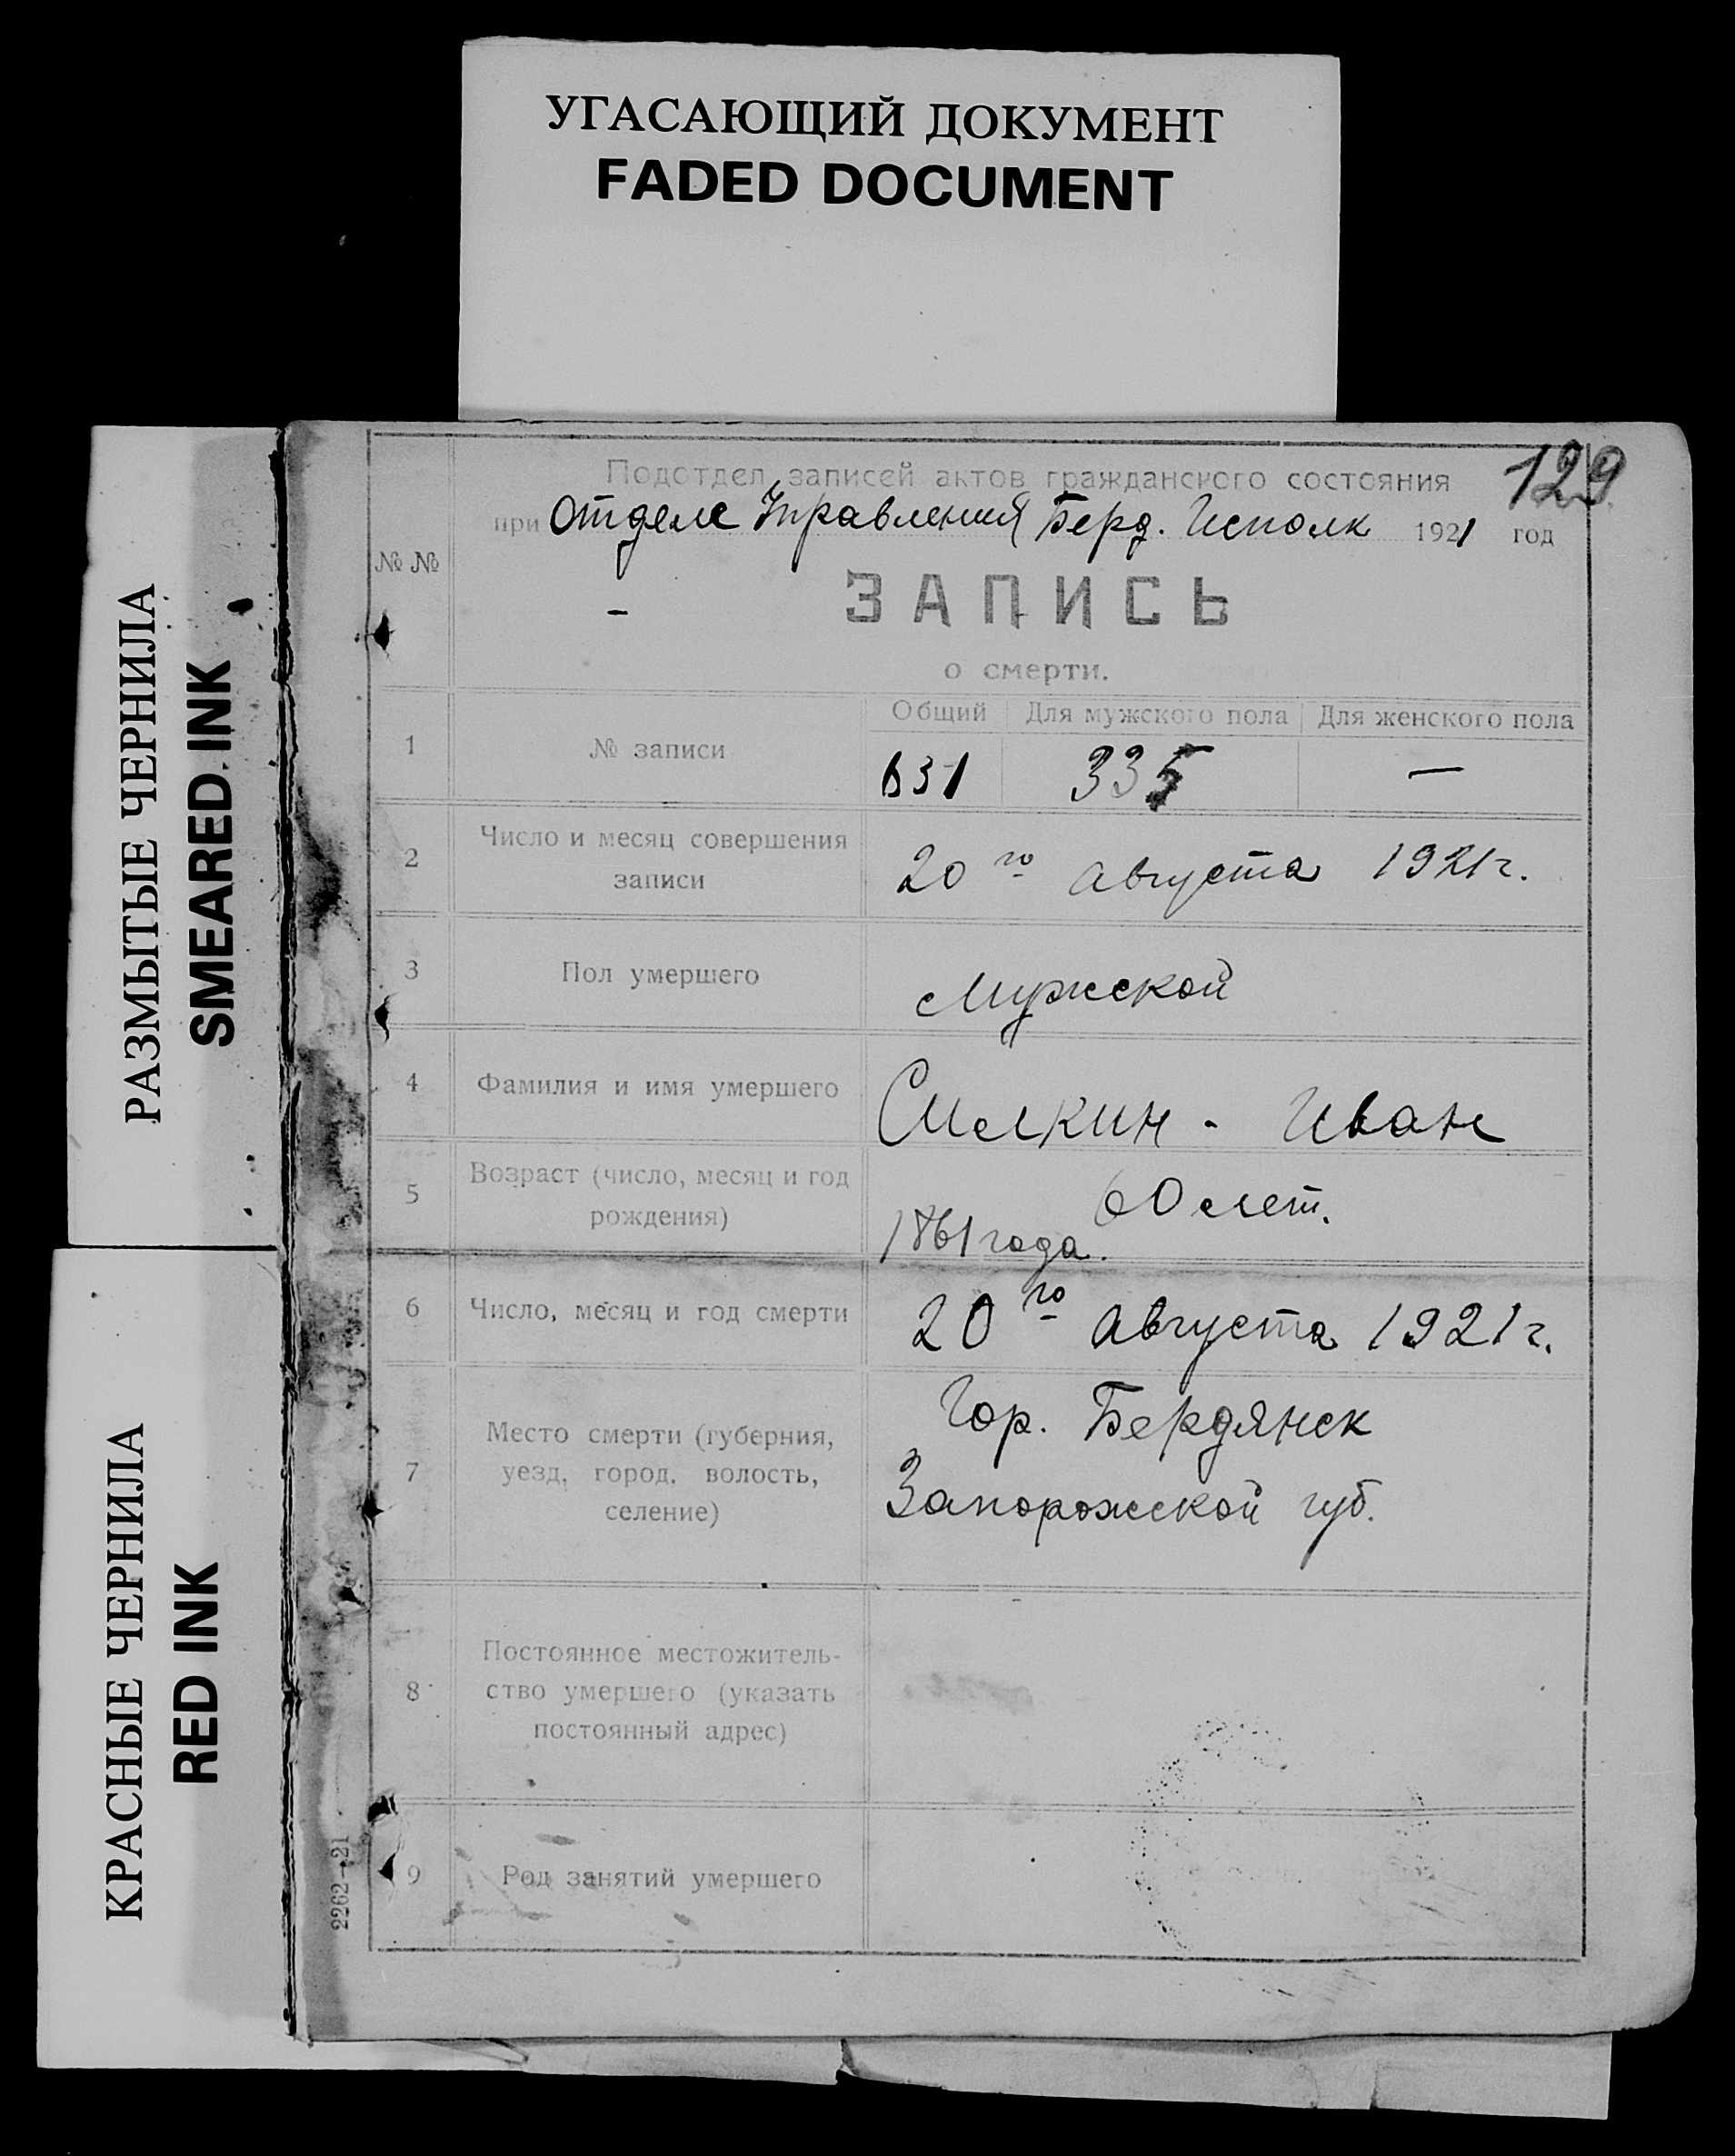 УГАСАЮЩИЙ ДОКУМЕНТ
FADED DOCUMENT
РАЗМЫТЫЕ ЧЕРНИЛА
SMEARED INK
КРАСНЫЕ ЧЕРНИЛА
RED INK
129
Подотдел записей актов гражданского состояния
при Отделе Управления Берд. Исполк 1921 год
№ №
ЗАПИСЬ
о смерти.
Общий Для мужского пола Для женского пола
1 № записи 631 335 —
2 Число и месяц совершения
записи
20го Августа 1921 г.
3 Пол умершего Мужской
4 Фамилия и имя умершего Иван
5 Возраст (число, месяц и год
рождения)
60 лет.
1861 года.
6 Число, месяц и год смерти 20го Августа 1921 г.
7 Место смерти (губерния,
уезд, город, волость,
селение)
Гор. Бердянск
Запорожской губ.
8 Постоянное местожитель-
ство умершего (указать
постоянный адрес)
9 Род занятий умершего
2262—21